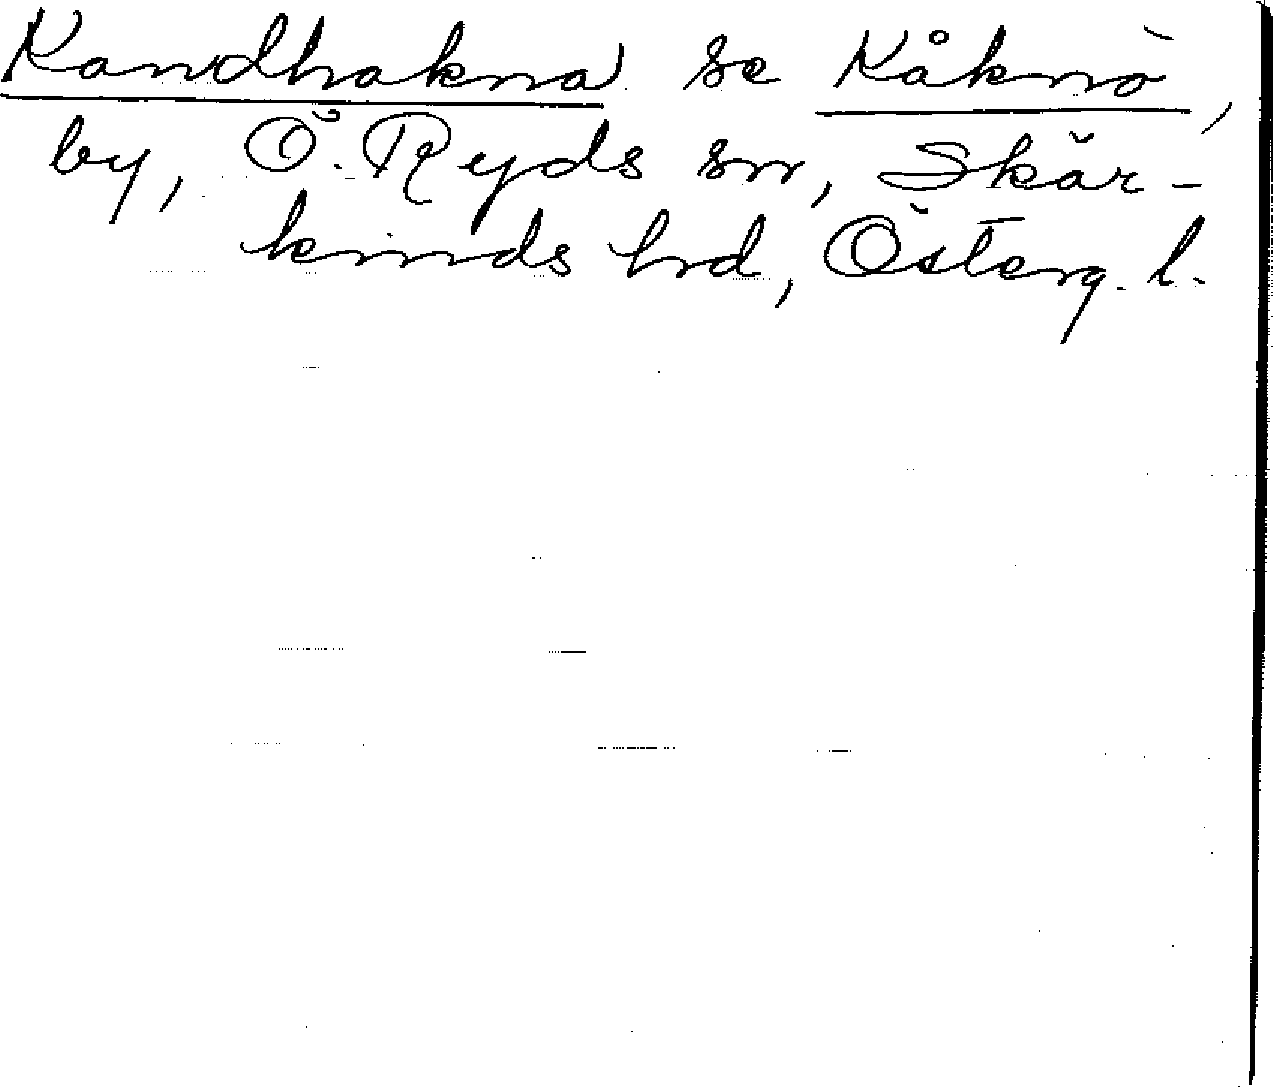 Kandhakna se Kåknö,
by, Ö. Ryds sn, Skär-
kinds hd, Österg. l.